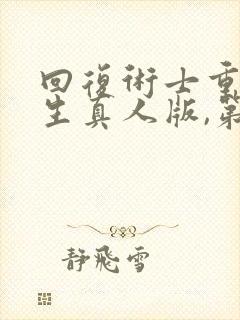 回復術士重
生真人版,第
静飛雪